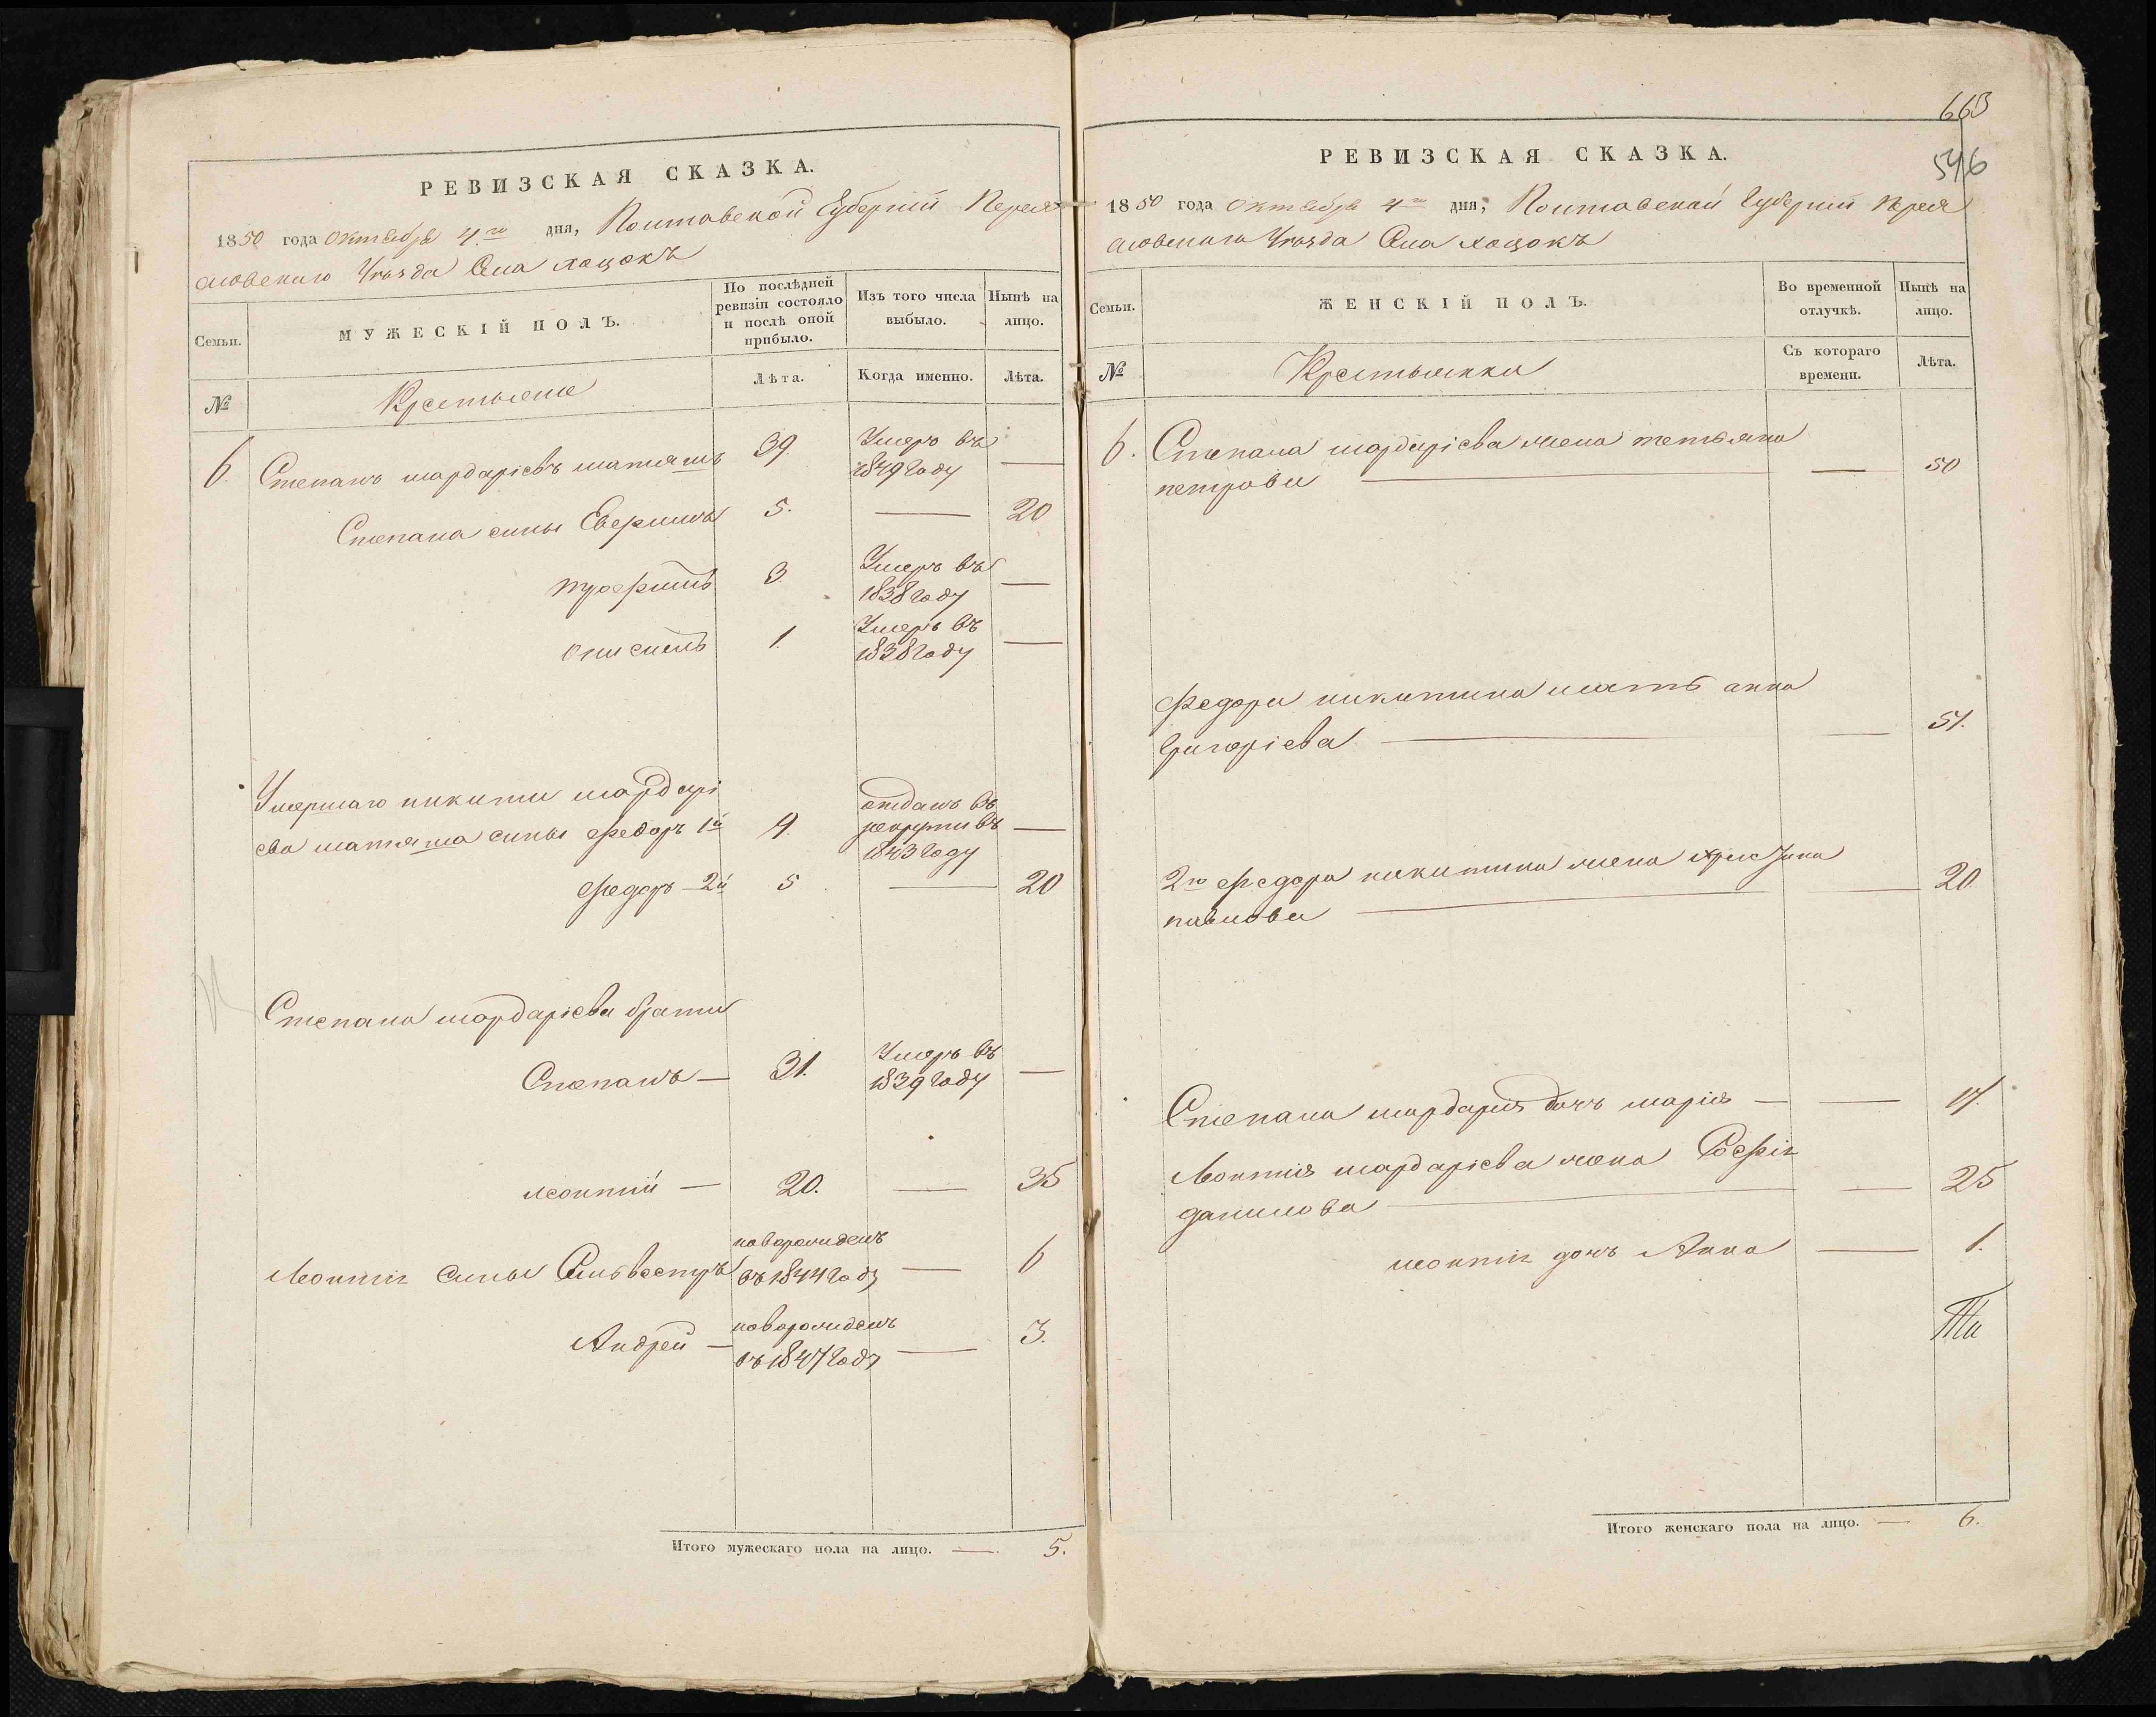 РЕВИЗСКАЯ СКАЗКА.
1850 года Октября 4го дня, Полтавской Губерніи Перея
славскаго Уезда Села хоцокъ
Семьи.
МУЖЕСКІЙ ПОЛЪ.
По послѣдней ревизіи состояло и послѣ оной прибыло.
Изъ того числа выбыло.
Нынѣ на лицо.
№
Крестьяне
Лѣта.
Когда именно.
Лѣта.
6. Степанъ мардаріевъ матяшъ 39. Умеръ въ 1849 году —
Степана сыны Сверинъ 5. — 20
трофимъ 3. Умеръ въ 1838 году —
онисимъ 1. Умеръ въ 1838 году —
Умершаго никиты мардарі
ева матяша сыны федоръ 1й 9. отданъ въ рекруты въ 1843 году —
федоръ 2й 5 — 20
Степана мардаріева браты
Степанъ — 31. Умеръ въ 1839 году —
леонтій — 20. — 35
Леонтія Сыны Сильвестръ новорожденъ въ 1844 году — 6
Андрей — новорожденъ въ 1847 году — 3.
Итого мужескаго пола на лицо. — 5.
663
546
РЕВИЗСКАЯ СКАЗКА.
1850 года Октября 4го дня, Полтавской Губерніи Перея
славскаго Уезда Села хоцокъ
Семьи.
ЖЕНСКІЙ ПОЛЪ.
Во временной отлучкѣ.
Нынѣ на лицо.
№
Крестьянки
Съ котораго времени.
Лѣта.
6. Степана мардаріева жена тетьяна
петрова — — 50
федора никитина мать анна
Григоріева — — 51.
2го федора никитина жена
павлова — — 20
Степана мардарія дочь марія — — 17.
Леонтія мардаріева жена Софія
данилова — — 25
леонтія дочь Анна — 1.
Итого женскаго пола на лицо. — 6.